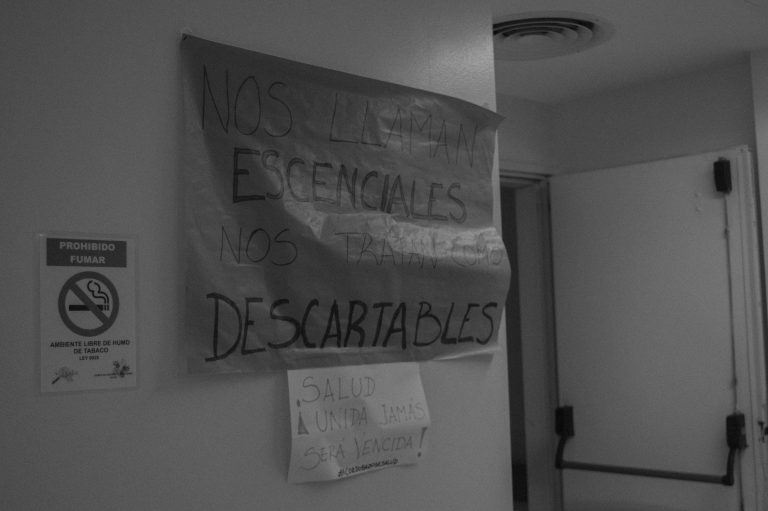 NOS LLAMAN
ESCENCIALES
NOS TRATAN COMO
DESCARTABLES
¡SALUD
UNIDA JAMÁS
SERÁ VENCIDA!
PROHIBIDO
FUMAR
AMBIENTE LIBRE DE HUMO
DE TABACO